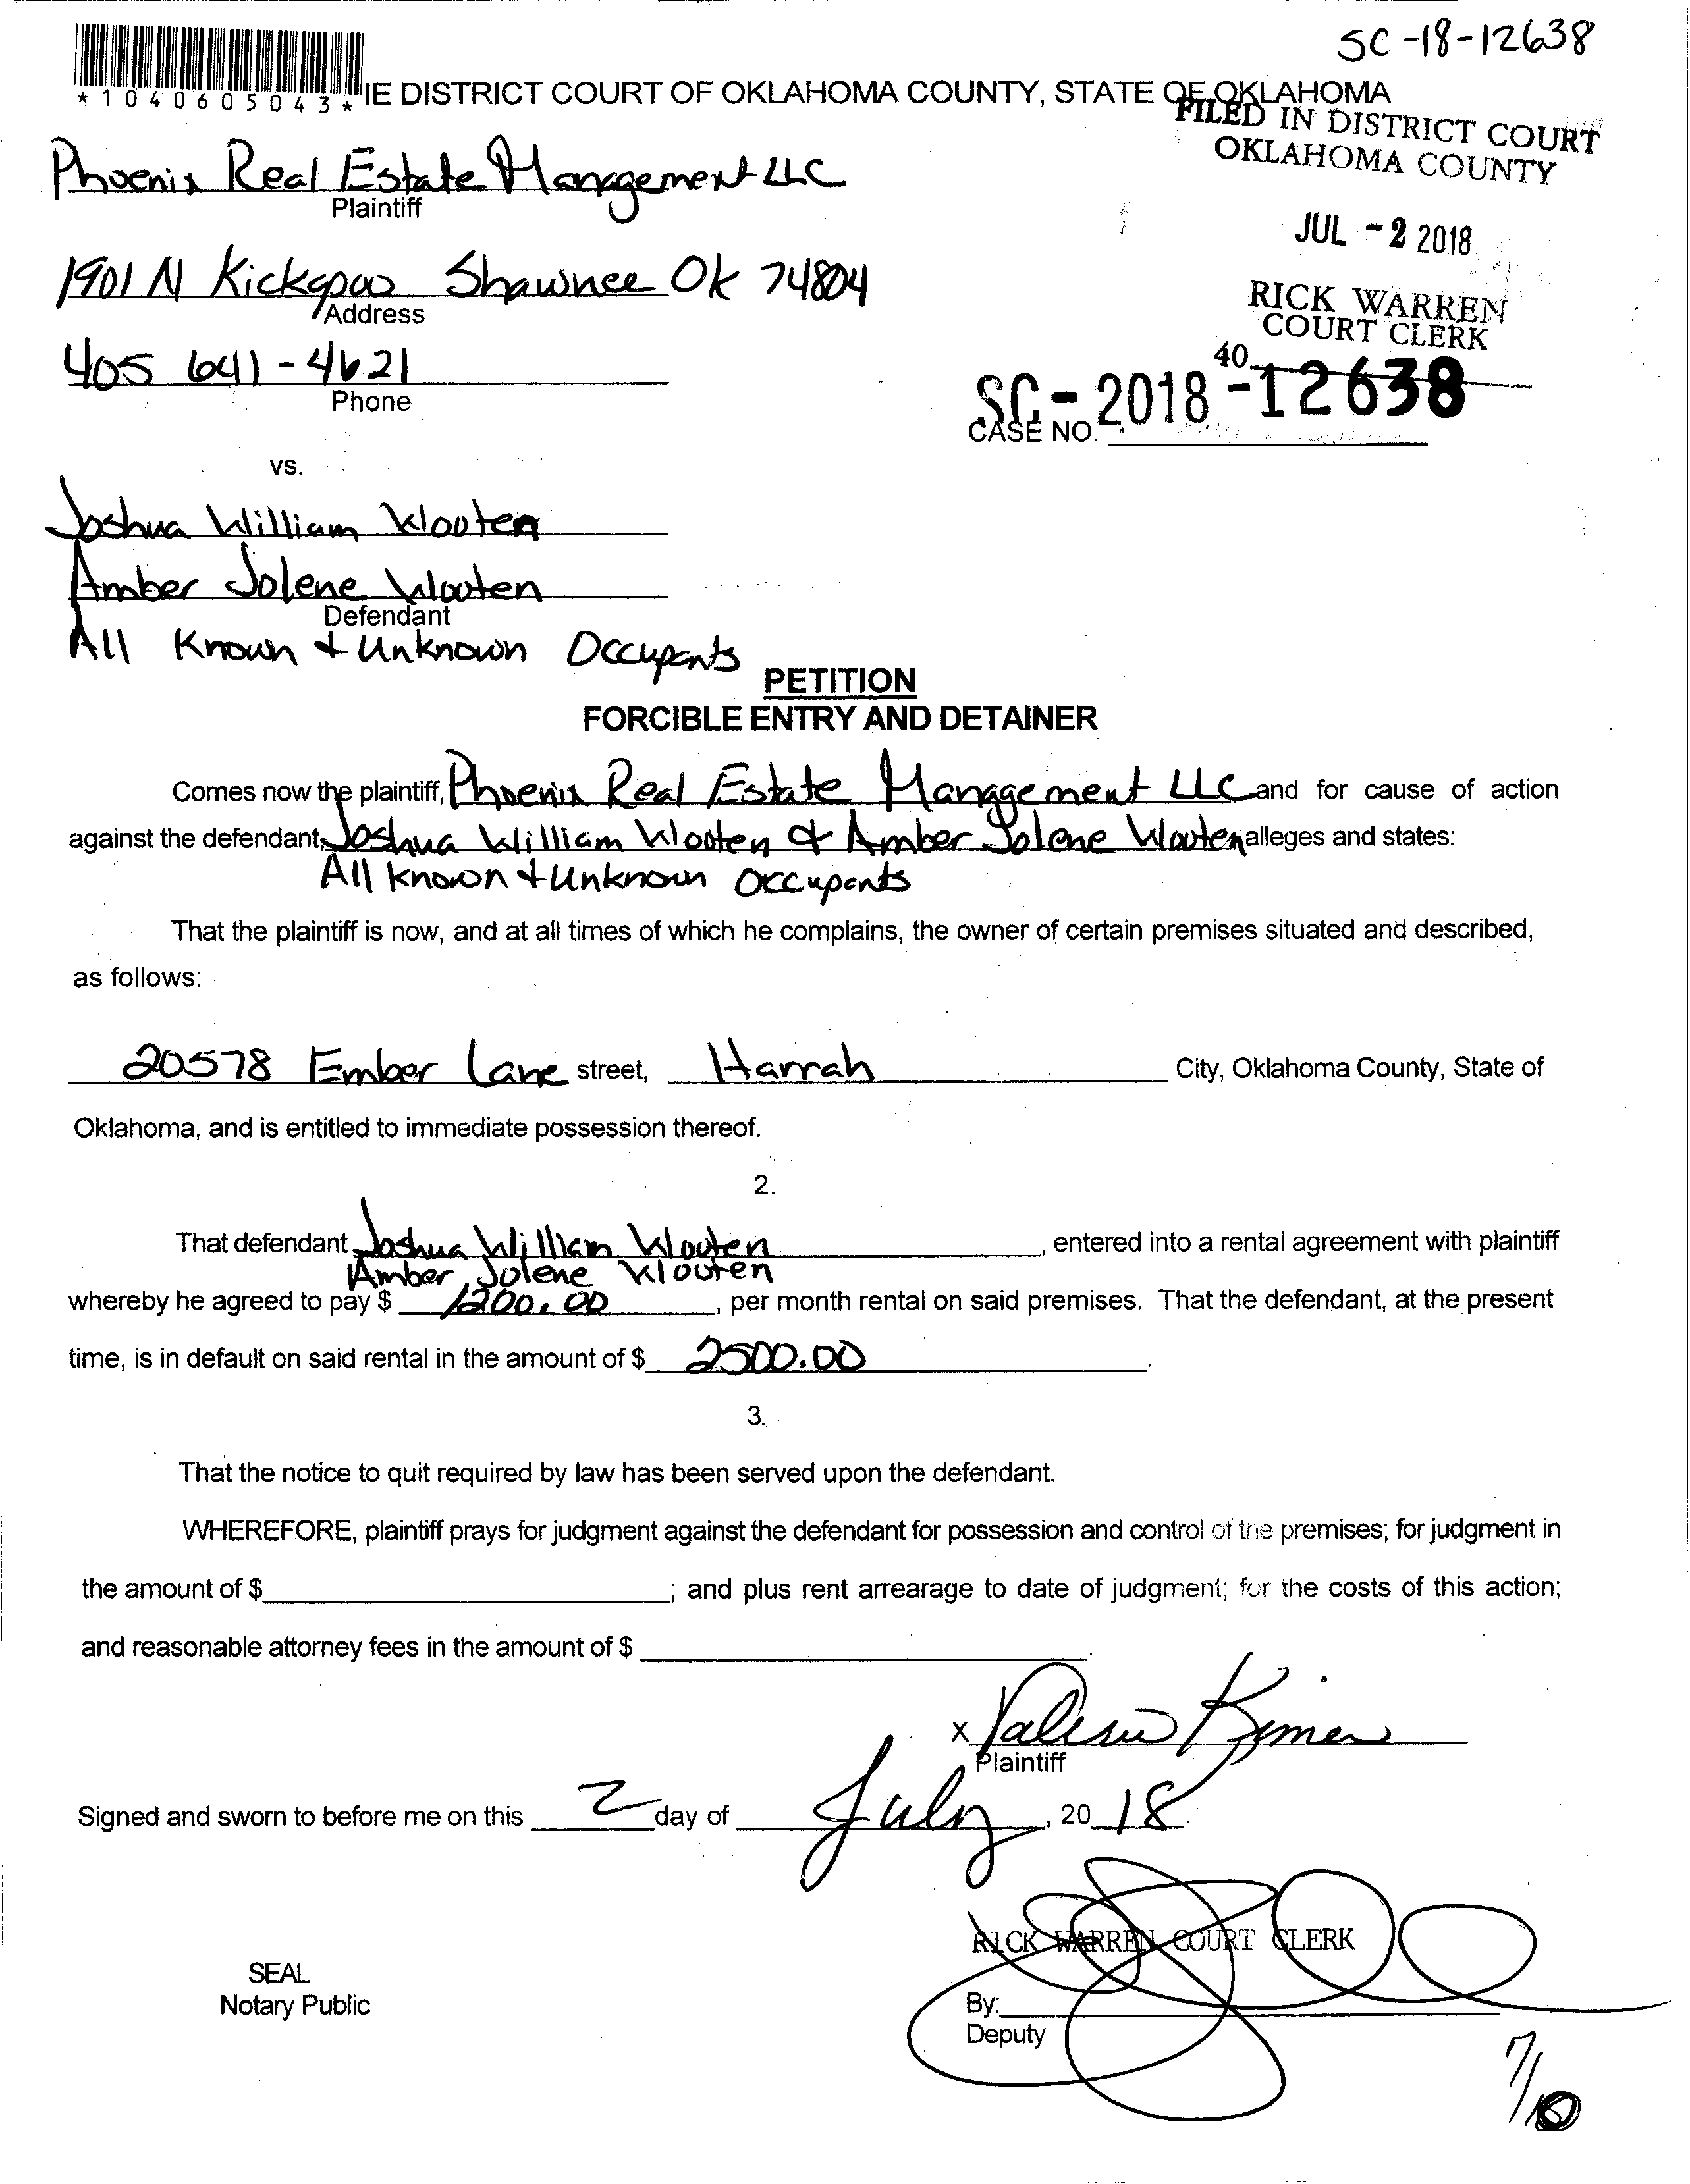 SC-18-12638
*1040605043*
IE DISTRICT COURT OF OKLAHOMA COUNTY, STATE OF OKLAHOMA
FILED IN DISTRICT COURT
OKLAHOMA COUNTY
Phoenix Real Estate Management LLC
Plaintiff
JUL - 2 2018
1901 N Kickapoo Shawnee Ok 74804
Address
RICK WARREN
COURT CLERK
405 641-4621
Phone
40
SC - 2018 - 12638
CASE NO.
vs.
Joshua William Wooten
Amber Jolene Wooten
Defendant
All Known + Unknown Occupants
PETITION
FORCIBLE ENTRY AND DETAINER
Comes now the plaintiff, Phoenix Real Estate Management LLC and for cause of action
against the defendant, Joshua William Wooten & Amber Jolene Wooten alleges and states:
All known + Unknown Occupants
That the plaintiff is now, and at all times of which he complains, the owner of certain premises situated and described,
as follows:
20578 Ember Lane street, Harrah City, Oklahoma County, State of
Oklahoma, and is entitled to immediate possession thereof.
2.
That defendant Joshua William Wooten, entered into a rental agreement with plaintiff
Amber Jolene Wooten
whereby he agreed to pay $ 1200.00, per month rental on said premises. That the defendant, at the present
time, is in default on said rental in the amount of $ 2500.00.
3.
That the notice to quit required by law has been served upon the defendant.
WHEREFORE, plaintiff prays for judgment against the defendant for possession and control of the premises; for judgment in
the amount of $ ; and plus rent arrearage to date of judgment; for the costs of this action;
and reasonable attorney fees in the amount of $ .
x Valerie
Plaintiff
Signed and sworn to before me on this 2 day of July, 20 18.
RICK WARREN COURT CLERK
SEAL
Notary Public
By:
Deputy